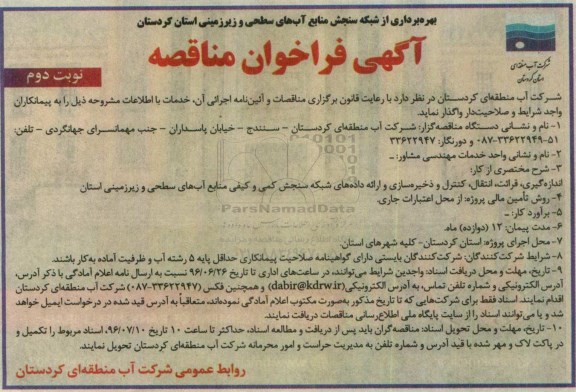 بهره‌برداری از شبکه سنجش منابع آب‌های سطحی و زیرزمینی استان کردستان
آگهی فراخوان مناقصه
شرکت آب منطقه‌ای
استان کردستان
نوبت دوم
شرکت آب منطقه‌ای کردستان در نظر دارد با رعایت قانون برگزاری مناقصات و آئین‌نامه اجرائی آن، خدمات با اطلاعات مشروحه ذیل را به پیمانکاران
واجد شرایط و صلاحیت‌دار واگذار نماید.
۱- نام و نشانی دستگاه مناقصه‌گزار: شرکت آب منطقه‌ای کردستان – سنندج – خیابان پاسداران – جنب مهمانسرای جهانگردی – تلفن:
۵۱-۳۳۶۲۲۹۴۹-۰۸۷ و دورنگار: ۳۳۶۲۲۹۴۷
۲- نام و نشانی واحد خدمات مهندسی مشاور: ـ
۳- شرح مختصری از کار:
اندازه‌گیری، قرائت، انتقال، کنترل و ذخیره‌سازی و ارائه داده‌های شبکه سنجش کمی و کیفی منابع آب‌های سطحی و زیرزمینی استان
۴- روش تأمین مالی پروژه: از محل اعتبارات جاری.
۵- برآورد کار: ـ
۶- مدت پیمان: ۱۲ (دوازده) ماه.
۷- محل اجرای پروژه: استان کردستان- کلیه شهرهای استان
۸- شرایط شرکت‌کنندگان: شرکت‌کنندگان بایستی دارای گواهینامه صلاحیت پیمانکاری حداقل پایه ۵ رشته آب و ظرفیت آماده به‌کار باشند.
۹- تاریخ، مهلت و محل دریافت اسناد: واجدین شرایط می‌توانند، در ساعت‌های اداری تا تاریخ ۹۶/۰۶/۲۶ نسبت به ارسال نامه اعلام آمادگی با ذکر آدرس،
آدرس الکترونیکی و شماره تلفن تماس، به آدرس الکترونیکی (dabir@kdrw.ir) و همچنین فکس (۳۳۶۲۲۹۴۷-۰۸۷) شرکت آب منطقه‌ای کردستان
اقدام نمایند. اسناد فقط برای شرکت‌هایی که تا تاریخ مذکور به‌صورت مکتوب اعلام آمادگی نموده‌اند، متعاقباً به آدرس قید شده در درخواست ایمیل خواهد
شد و یا می‌توانند اسناد را از سایت پایگاه ملی اطلاع‌رسانی مناقصات دریافت نمایند.
۱۰- تاریخ، مهلت و محل تحویل اسناد: مناقصه‌گران باید پس از دریافت و مطالعه اسناد، حداکثر تا ساعت ۱۰ تاریخ ۹۶/۰۷/۱۰، اسناد مربوط را تکمیل و
در پاکت لاک و مهر شده با قید آدرس و شماره تلفن به مدیریت حراست و امور محرمانه شرکت آب منطقه‌ای کردستان تحویل نمایند.
روابط عمومی شرکت آب منطقه‌ای کردستان
ParsNamadData